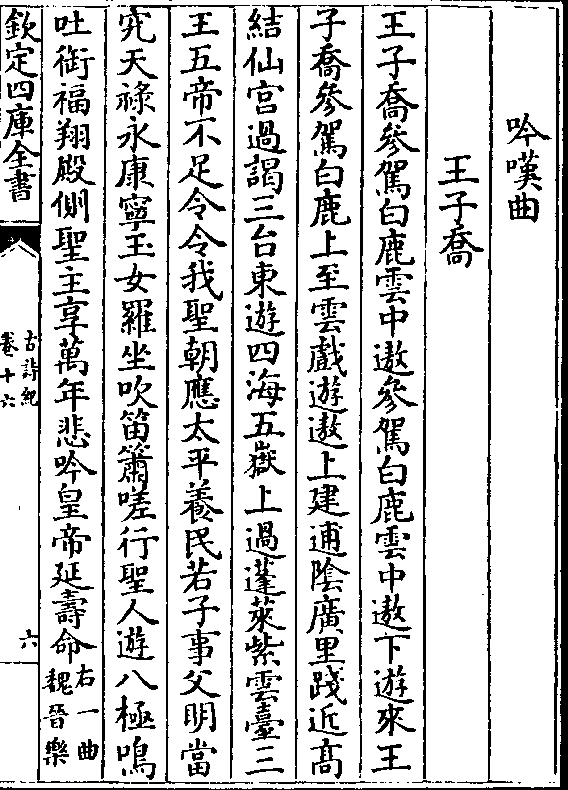 吟嘆曲
王子喬
王子喬參駕白鹿雲中遨參駕白鹿雲中遨下遊來王
子喬參駕白鹿上至雲戲遊遨上建逋陰廣里踐近髙
結仙宫過謁三台東遊四海五嶽上過蓬萊紫雲臺三
王五帝不足令令我聖朝應太平養民若子事父明當
究天祿永康寧玉女羅坐吹笛簫嗟行聖人遊八極鳴
吐銜福翔殿側聖主享萬年悲吟皇帝延壽命右一曲
魏晉樂
欽定四庫全書
古詩紀
卷十六
六